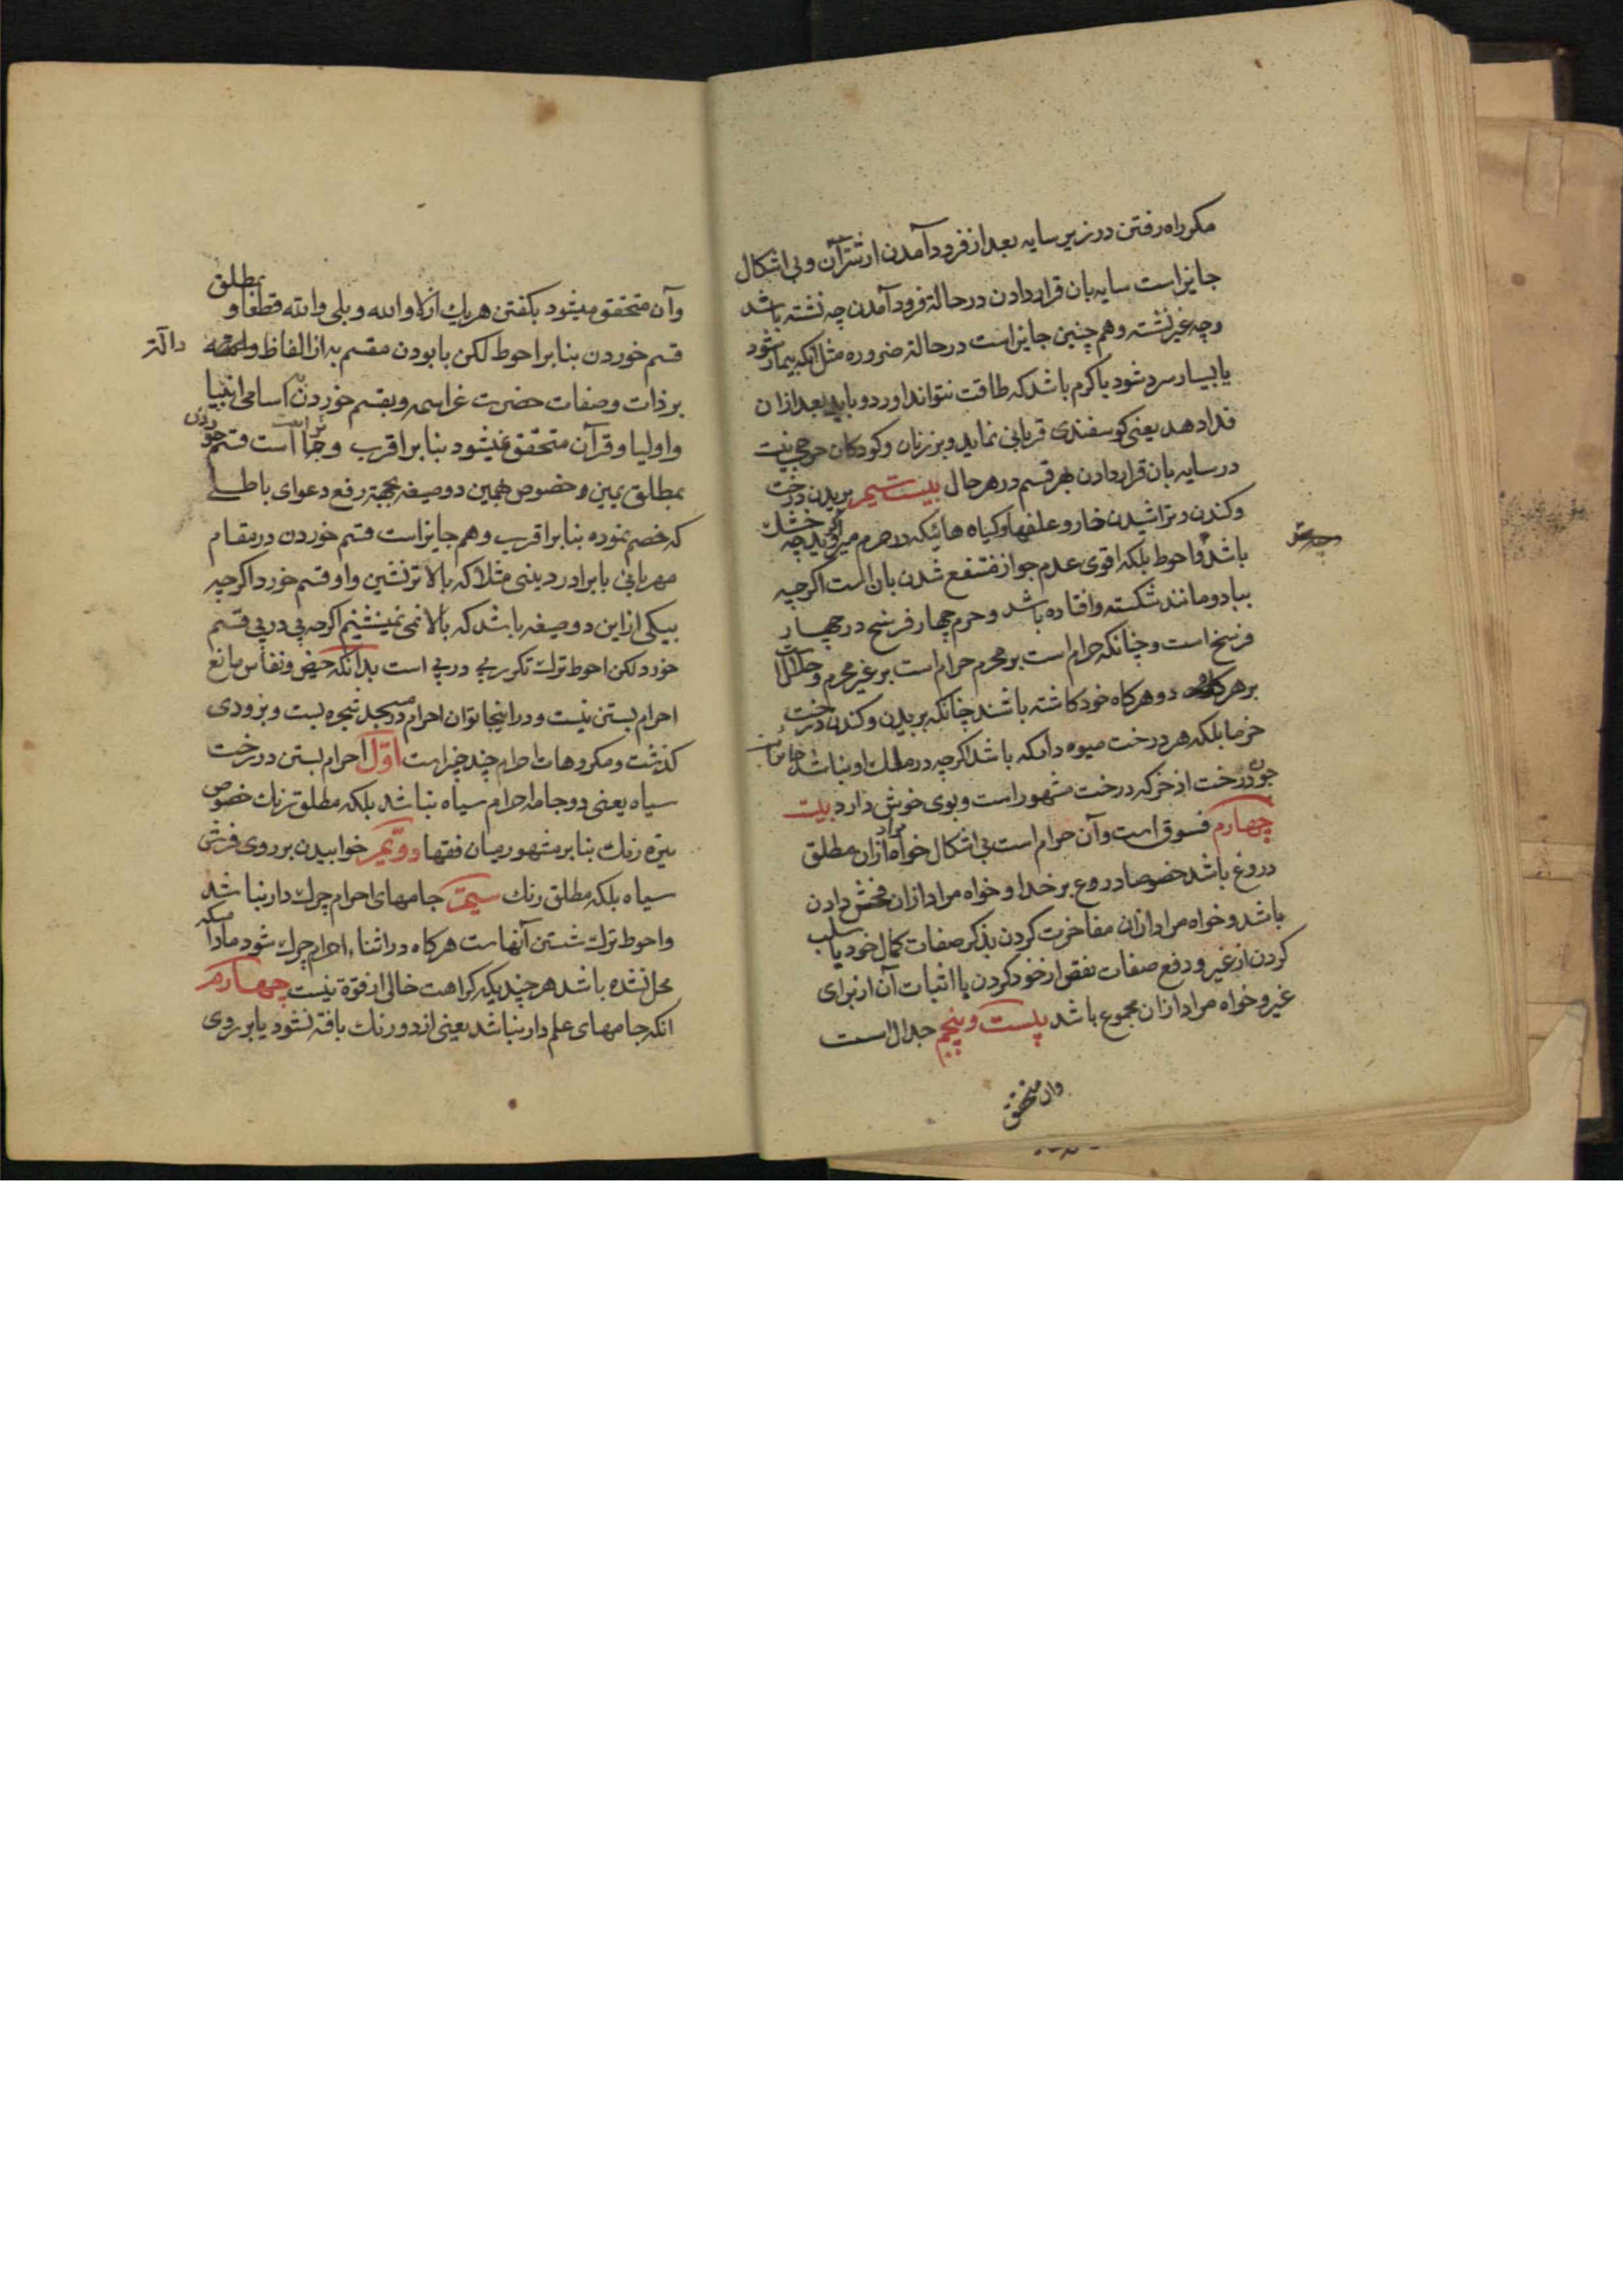 مکر راه رفتن در زیر سایه بعد از فرود آمدن از شتران و بی اشکال
جایز است سایه بان قرار دادن در حالة فرود آمدن چه نشته باشد
وچه غیر نشته و هم چنین جایز است در حالة ضروره مثل آنکه بیمار شود
یا بسیار سرد شود یا کرم باشد که طاقت نتواند آورد و باید بعد از ان
فدا دهد یعنی کوسفندی قربانی نماید و بر زنان و کودکان حرجی نیست
در سایه بان قرار دادن بهر قسم در هر حال بیست سیم بریدن درخت
وکندن و تراشیدن خار و علفها و کیاه هائیکه در حرم میروید چه خشک
باشد واحوط بلکه اقوی عدم جواز منتفع شدن بان است اکرچه
بباد و مانند شکسته و افتاده باشد و حرم چهار فرسخ در چهار
فرسخ است و چنانکه حرام است بر محرم حرام است بر غیر محرم و حلال است
بر هر دو هرکاه خود کاشته باشند چنانکه بریدن و کندن درخت
خرما بلکه هر درخت میوه دامکه باشد اکرچه در ملک او نباشد جایز است
چون درخت اذخر که درخت مشهور است و بوی خوش دارد بیست
چهارم فسوق است و آن حرام است بی اشکال خواه مراد ازان مطلق
دروغ باشد خصوصا دروغ بر خدا و خواه مراد ازان فحش دادن
باشد و خواه مراد ازان مفاخرت کردن بذکر صفات کمال خود یا سلب
کردن از غیر و دفع صفات نقص از خود کردن یا اثبات آن از برای
غیر و خواه مراد ازان مجموع باشد بیست و پنجم جدال است
وان متحقق
وآن متحقق میشود بکفتن هر یک از لا والله و بلی والله قطعا و بمطلق
قسم خوردن بنابر احوط لکن با بودن مقسم به از الفاظ دالّه
بر ذات و صفات حضرت عز اسمه و بقسم خوردن به اسامی انبیا
و اولیا و قرآن متحقّق نمیشود بنابر اقرب و جایز است قسم خوردن
بمطلق یمین و خصوص همین دو صیغه بجهة رفع دعوای باطلی
که خصم نموده بنابر اقرب و هم جایز است قسم خوردن در مقام
مهربانی با برادر دینی مثلا که بالاتر نشین و او قسم خورد اکرچه
بیکی از این دو صیغه باشد که بالا نمی نمیشینم اکرچه پی در پی قسم
خورد لکن احوط ترک تکرر پی در پی است بدانکه حیض و نفاس مانع
احرام بستن نیست و در اینجا توان احرام در مسجد شجره بست و بزودی
کذشت و مکروهات احرام چند چیز است اوّل احرام بستن در رخت
سیاه یعنی دو جامه احرام سیاه نباشد بلکه مطلق رنك خصوص
تیره رنك بنابر مشهور میان فقها دوّیم خوابیدن بر روی فرش
سیاه بلکه مطلق رنك سیّم جامهای احرام چرك دار نباشد
واحوط ترك شستن آنهاست هرکاه در اثناء احرام چرك شود مادامیکه
محل نشده باشد هر چند یکه کراهت خالی از قوّة نیست چهارم
انکه جامهای علم دار نباشد یعنی از دو رنك بافته نشود یا بر روی